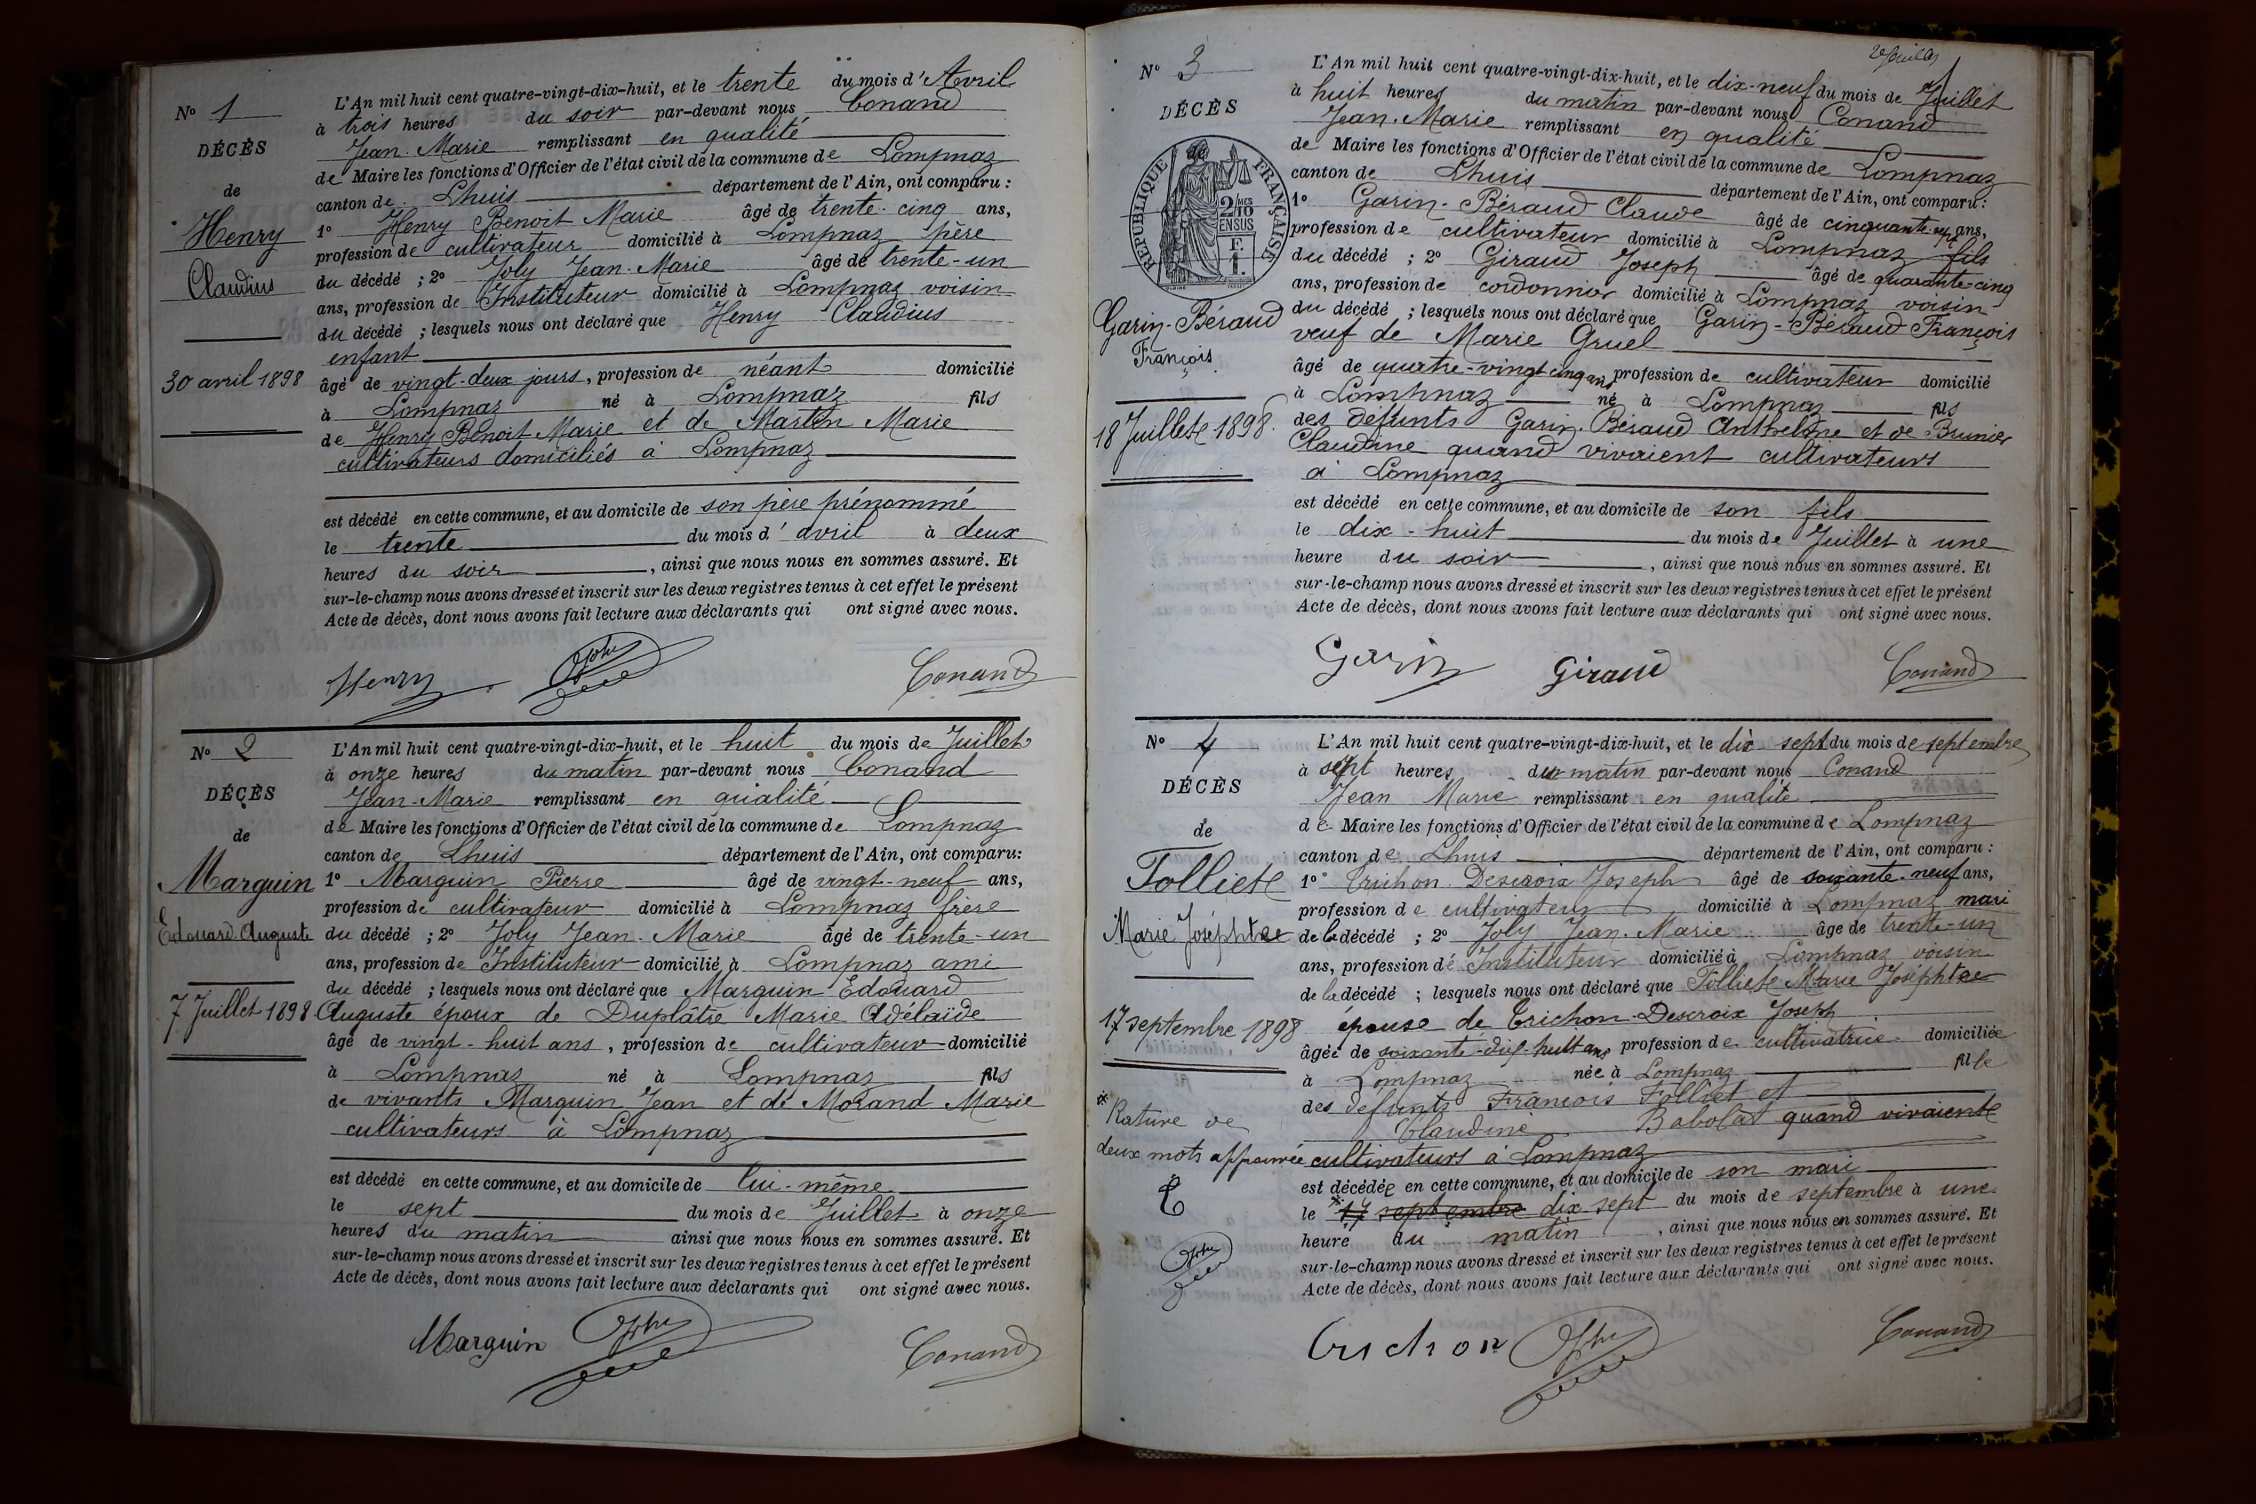 Nº 1
DÉCÈS
de
Henry
Claudius
30 avril 1898
L'An mil huit cent quatre-vingt-dix-huit, et le trente du mois d'Avril
à trois heures du soir par-devant nous Conand
Jean-Marie remplissant en qualité
de Maire les fonctions d'Officier de l'état civil de la commune de Lompnaz
canton de Lhuis département de l'Ain, ont comparu :
1º Henry Benoit Marie âgé de trente-cinq ans,
profession de cultivateur domicilié à Lompnaz père
du décédé ; 2º Joly Jean-Marie âgé de trente-un
ans, profession de Instituteur domicilié à Lompnaz voisin
du décédé ; lesquels nous ont déclaré que Henry Claudius
enfant
âgé de vingt-deux jours, profession de néant domicilié
à Lompnaz né à Lompnaz fils
de Henry Benoit Marie et de Martin Marie
cultivateurs domiciliés à Lompnaz
est décédé en cette commune, et au domicile de son père prénommé
le trente du mois d'avril à deux
heures du soir, ainsi que nous nous en sommes assuré. Et
sur-le-champ nous avons dressé et inscrit sur les deux registres tenus à cet effet le présent
Acte de décès, dont nous avons fait lecture aux déclarants qui ont signé avec nous.
Henry Conand
Nº 2
DÉCÈS
de
Marguin
Edouard Auguste
7 Juillet 1898
L'An mil huit cent quatre-vingt-dix-huit, et le huit du mois de Juillet
à onze heures du matin par-devant nous Conand
Jean-Marie remplissant en qualité
de Maire les fonctions d'Officier de l'état civil de la commune de Lompnaz
canton de Lhuis département de l'Ain, ont comparu:
1º Marguin Pierre âgé de vingt-neuf ans,
profession de cultivateur domicilié à Lompnaz frère
du décédé ; 2º Joly Jean-Marie âgé de trente-un
ans, profession de Instituteur domicilié à Lompnaz ami
du décédé ; lesquels nous ont déclaré que Marguin Edouard
Auguste époux de Duplâtre Marie Adélaïde
âgé de vingt-huit ans, profession de cultivateur domicilié
à Lompnaz né à Lompnaz fils
de vivants Marguin Jean et de Morand Marie
cultivateurs à Lompnaz
est décédé en cette commune, et au domicile de lui-même
le sept du mois de Juillet à onze
heures du matin ainsi que nous nous en sommes assuré. Et
sur-le-champ nous avons dressé et inscrit sur les deux registres tenus à cet effet le présent
Acte de décès, dont nous avons fait lecture aux déclarants qui ont signé avec nous.
Marguin Conand
Nº 3
DÉCÈS
de
RÉPUBLIQUE FRANÇAISE
2/10 MES
EN SUS
1 F.
Garin-Béraud
François
18 Juillet 1898.
L'An mil huit cent quatre-vingt-dix-huit, et le dix-neuf du mois de Juillet
à huit heures du matin par-devant nous Conand
Jean-Marie remplissant en qualité
de Maire les fonctions d'Officier de l'état civil de la commune de Lompnaz
canton de Lhuis département de l'Ain, ont comparu :
1º Garin-Béraud Claude âgé de cinquante-sept ans,
profession de cultivateur domicilié à Lompnaz fils
du décédé ; 2º Giraud Joseph âgé de quarante-cinq
ans, profession de cordonnier domicilié à Lompnaz voisin
du décédé ; lesquels nous ont déclaré que Garin-Béraud François
veuf de Marie Gruel
âgé de quatre-vingt cinq ans profession de cultivateur domicilié
à Lompnaz né à Lompnaz fils
des défunts Garin-Béraud Anthelme et de Brunier
Claudine quand vivaient cultivateurs
à Lompnaz
est décédé en cette commune, et au domicile de son fils
le dix-huit du mois de Juillet à une
heure du soir, ainsi que nous nous en sommes assuré. Et
sur-le-champ nous avons dressé et inscrit sur les deux registres tenus à cet effet le présent
Acte de décès, dont nous avons fait lecture aux déclarants qui ont signé avec nous.
Garin Giraud Conand
Nº 4
DÉCÈS
de
Folliet
Marie Joséphte
17 septembre 1898
* Rature de
deux mots approuvée
L'An mil huit cent quatre-vingt-dix-huit, et le dix sept du mois de septembre
à sept heures du matin par-devant nous Conand
Jean Marie remplissant en qualité
de Maire les fonctions d'Officier de l'état civil de la commune de Lompnaz
canton de Lhuis département de l'Ain, ont comparu :
1º Trichon Descroix Joseph âgé de soixante-neuf ans,
profession de cultivateur domicilié à Lompnaz mari
de la décédé ; 2º Joly Jean-Marie âgé de trente-un
ans, profession de Instituteur domicilié à Lompnaz voisin
de la décédé ; lesquels nous ont déclaré que Folliet Marie Joséphte
épouse de Trichon-Descroix Joseph
âgée de soixante-dix-huit ans profession de cultivatrice domiciliée
à Lompnaz née à Lompnaz fille
des défunts François Folliet et
Claudine Babolat quand vivaient
cultivateurs à Lompnaz
est décédée en cette commune, et au domicile de son mari
le * 17 septembre dix sept du mois de septembre à une
heure du matin, ainsi que nous nous en sommes assuré. Et
sur-le-champ nous avons dressé et inscrit sur les deux registres tenus à cet effet le présent
Acte de décès, dont nous avons fait lecture aux déclarants qui ont signé avec nous.
Trichon Conand